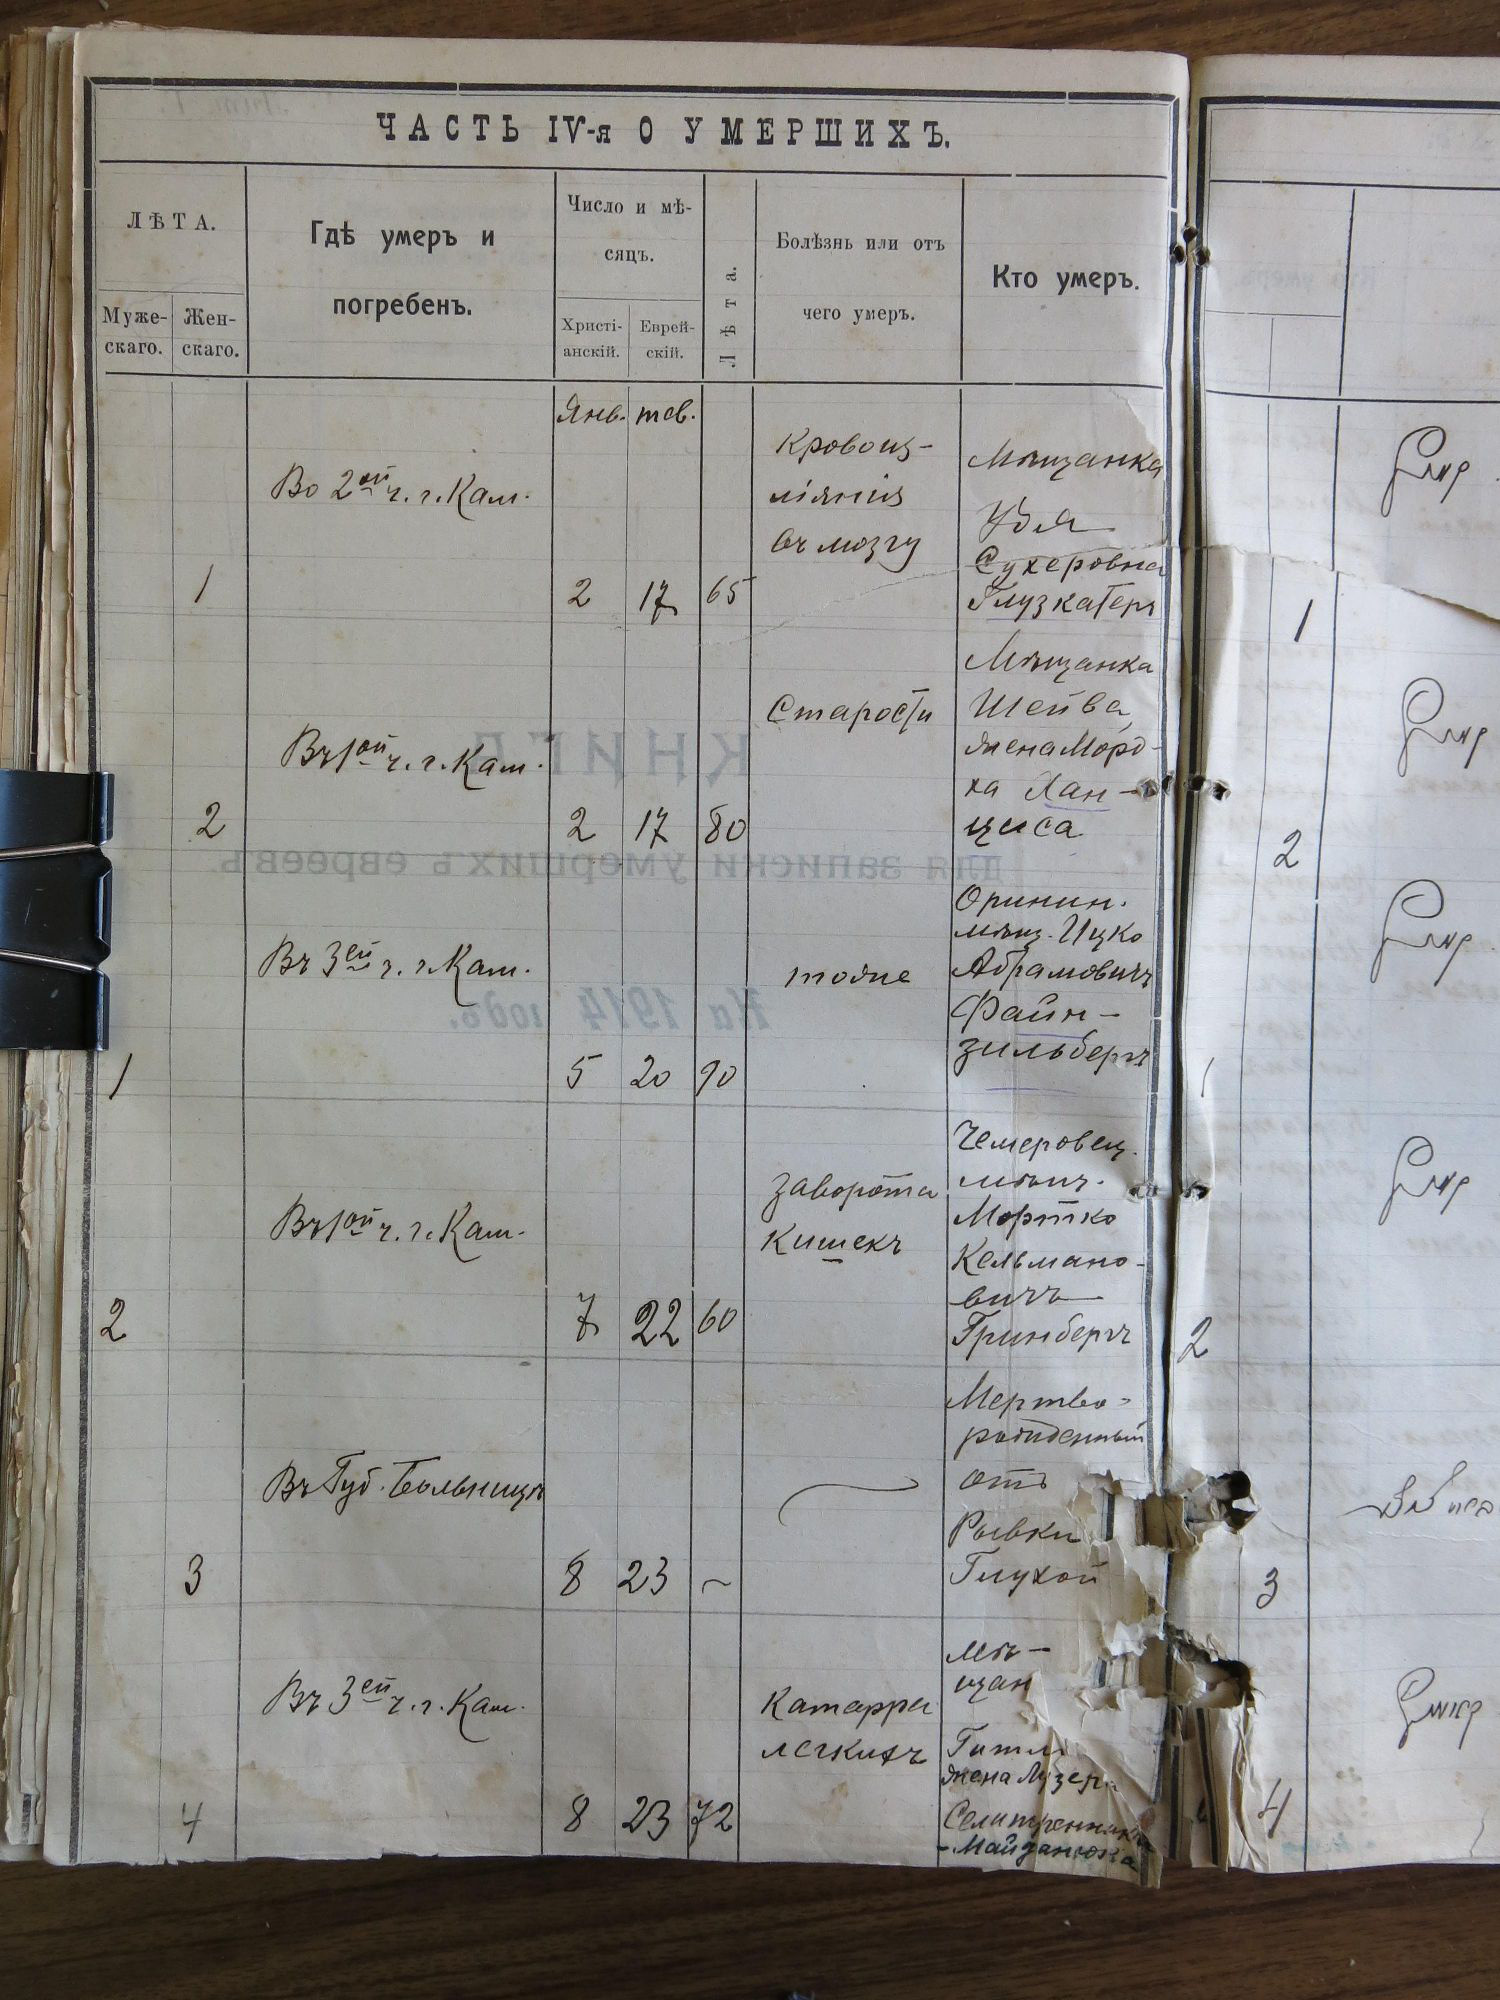 ЧАСТЬ IV-я О УМЕРШИХЪ.
ЛѢТА.
Муже-
скаго.
Жен-
скаго.
Гдѣ умеръ и
погребенъ.
Число и мѣ-
сяцъ.
Христі-
анскій.
Еврей-
скій.
Лѣта.
Болѣзнь или отъ
чего умеръ.
Кто умеръ.
Янв. тев.
Во 2ой ч. г. Кам.
Кровоиз-
ліянія
въ мозгу
Мѣщанка
Сухеровна
Глузкатеръ
1 2 17 65
Въ 1ой ч. г. Кам.
Старости
Мѣщанка
Шейва
жена Мордо-
ха Хан-
циса
2 2 17 80
Въ 3ей ч. г. Кам.
тоже
Оринин.
мѣщ. Ицко
Абрамовичъ
Файн-
зильберъ
1 5 20 90
Въ 1ой ч. г. Кам.
заворота
кишекъ
Чемеровец.
мѣщ.
Мортко
Кельмано-
вичъ
Гринбергъ
2 7 22 60
Въ Губ. Больницѣ
Мертво-
рожденный
отъ
Рывки
Глухой
3 8 23 ~
Въ 3ей ч. г. Кам.
Катарра
легкихъ
Мѣ-
щан
Гитл
жена Лузер
Селитренника
-Майданюка
4 8 23 72
1
2
1
2
3
4
КНИГА
для записки умершихъ евреевъ
На 1914 годъ.